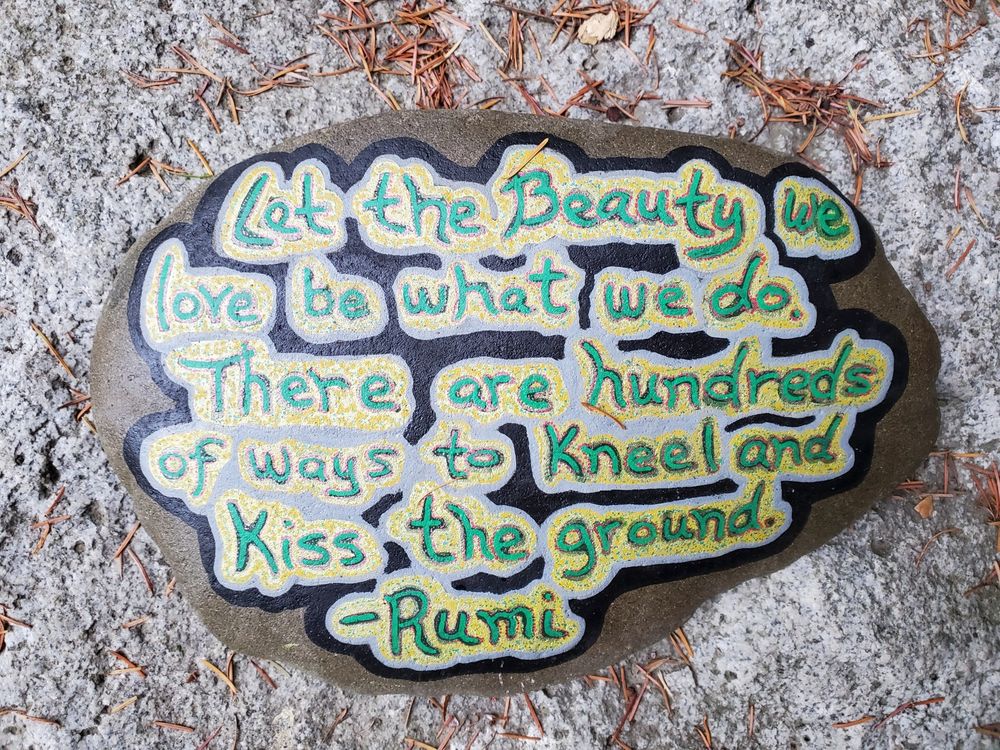 Let the Beauty we
love be what we do.
There are hundreds
of ways to Kneel and
Kiss the ground.
-Rumi